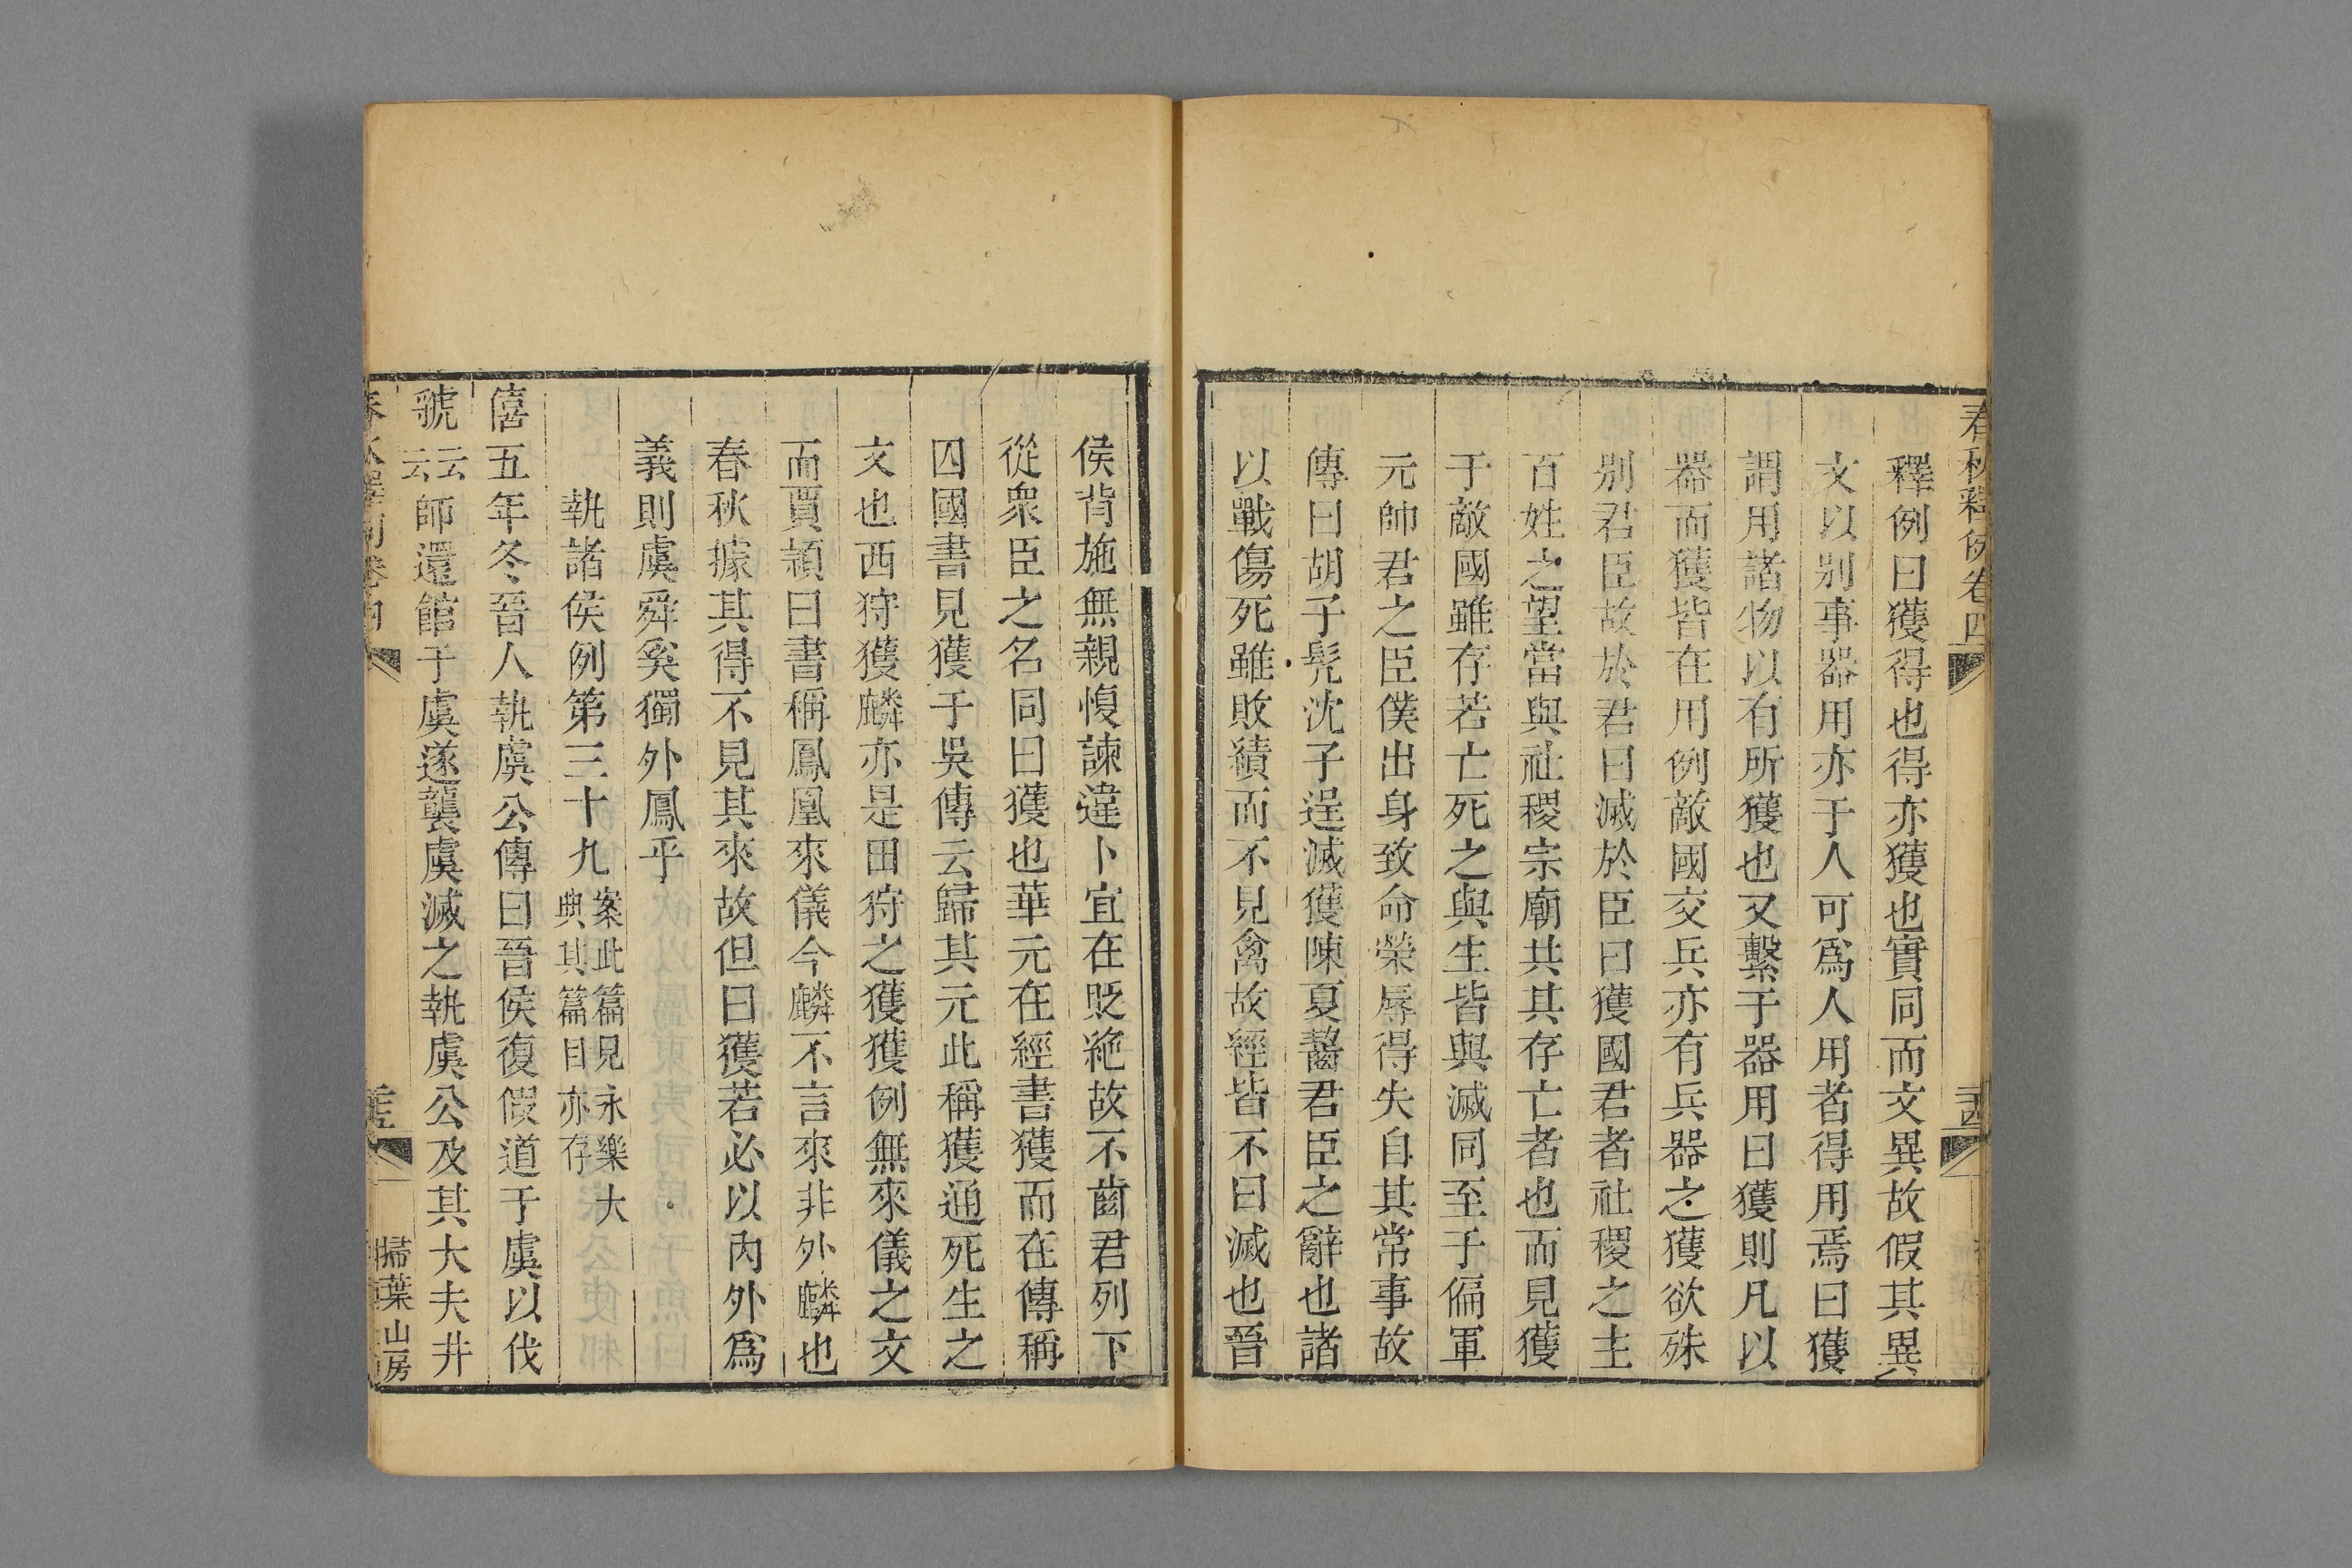 春秋釋例卷四
釋例曰獲得也得亦獲也實同而文異故假其異
文以别事器用亦于人可爲人用者得用焉曰獲
謂用諸物以有所獲也又繫于器用曰獲則凡以
器而獲皆在用例敵國交兵亦有兵器之獲欲殊
别君臣故於君曰滅於臣曰獲國君者社稷之主
百姓之望當與社稷宗廟共其存亡者也而見獲
于敵國雖存若亡死之與生皆與滅同至于偏軍
元帥君之臣僕出身致命榮辱得失自其常事故
傳曰胡子髡沈子逞滅獲陳夏齧君臣之辭也諸
以戰傷死雖敗績而不見禽故經皆不曰滅也晉
侯背施無親愎諫違卜宜在貶絶故不齒君列下
從衆臣之名同曰獲也華元在經書獲而在傳稱
囚國書見獲于吳傳云歸其元此稱獲通死生之
文也西狩獲麟亦是田狩之獲獲例無來儀之文
而賈頴曰書稱鳳凰來儀今麟不言來非外麟也
春秋據其得不見其來故但曰獲若必以內外爲
義則虞舜奚獨外鳳乎
執諸侯例第三十九
案此篇見永樂大
典其篇目亦存
僖五年冬晉人執虞公傳曰晉侯復假道于虞以伐
虢云云師還館于虞遂襲虞滅之執虞公及其大夫井
春秋釋例卷四
掃葉山房